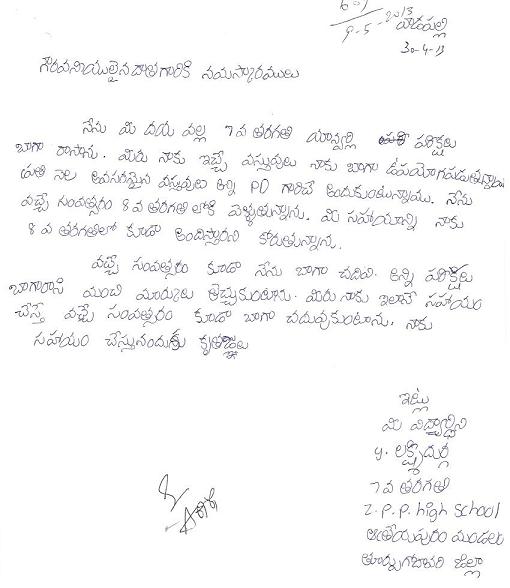 601
9-5-2013
వాడపల్లి
30-4-13
గౌరవనీయులైన దాతగారికి నమస్కారములు
నేను మి దయ వల్ల 7వ తరగతి యాన్వల్లి పరిక్షలు
బాగా రాసాను. మిరు నాకు ఇచ్చే వస్తువులు నాకు బాగా ఉపయోగపడుతున్నాయి
ప్రతి నెల అవసరమైన వస్తువులు అన్ని PD గారిచే అందుకుంటున్నాము. నేను
వచ్చే సంవత్సరం 8వ తరగతి లోకి వెళ్ళుతున్నాను. మి సహాయాన్ని నాకు
8వ తరగతిలో కూడా అందిస్తారని కోరుతున్నాను.
వచ్చే సంవత్సరం కూడా నేను బాగా చదివి. అన్ని పరిక్షలు
బాగారాసి మంచి మార్కులు తెచ్చుకుంటాను. మిరు నాకు ఇలానే సహాయం
చేస్తే వచ్చే సంవత్సరం కూడా బాగా చదువుకుంటాను. నాకు
సహాయం చేస్తునందుకు కృతజ్ఞతలు
ఇట్లు
మి విద్యార్ధిని
y. లక్ష్మిదుర్గ
7వ తరగతి
Z.P.P. high School
ఆత్రేయపురం మండలం
తూర్పుగోదావరి జిల్లా